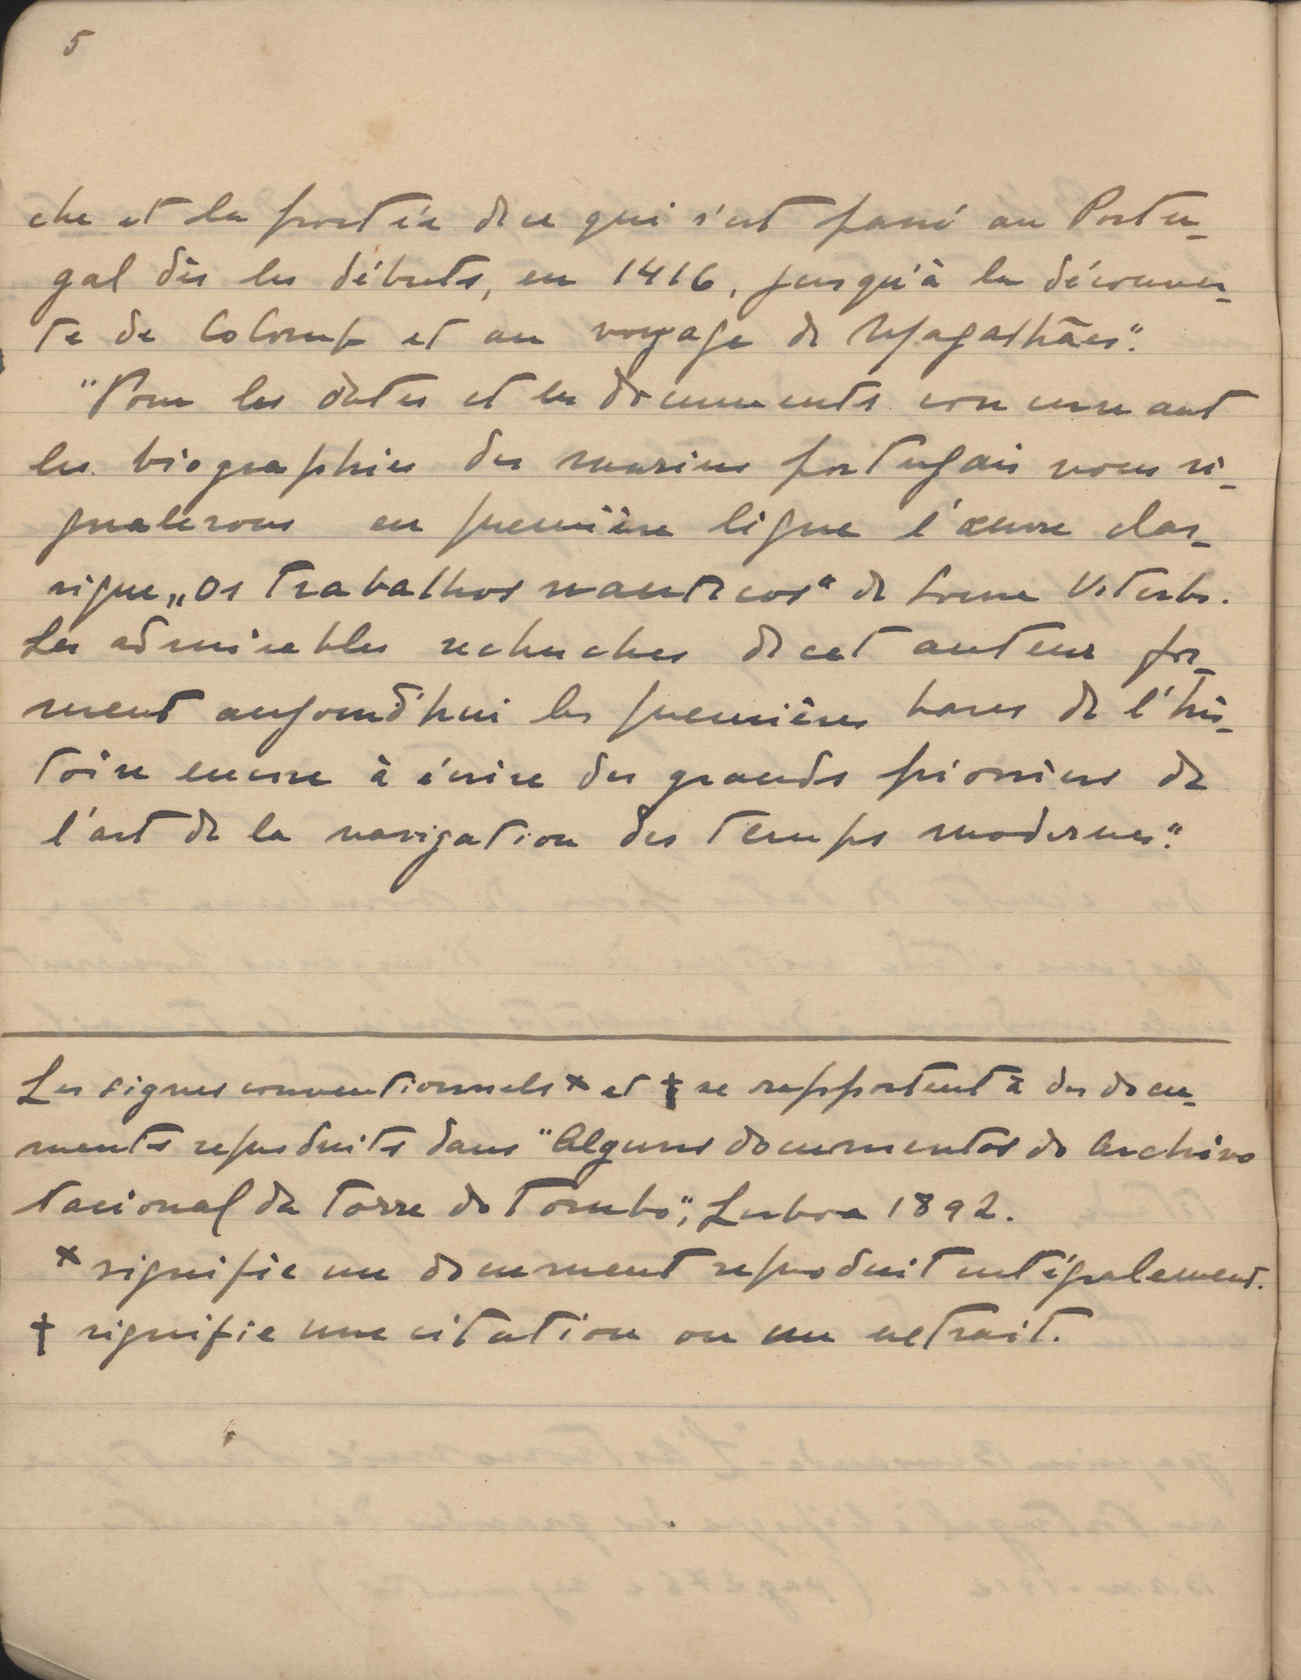 5
che et la portée de ce qui s'est passé au Portu-
gal dès les débuts, en 1416, jusqu'à la découver-
te de Colomb et au voyage de Magalhães".
"Pour les dates et les documents concernant
les biographies des marins portugais nous si-
gnalerons en première ligne l'œuvre clas-
sique „Os trabalhos nauticos" de Sousa Viterbo.
Les admirables recherches de cet auteur for-
ment aujourd'hui les premières bases de l'his-
toire encore à écrire des grands pionniers de
l'art de la navigation des temps modernes".
Les signes conventionnels * et † se rapportent à des docu-
ments reproduits dans "Alguns documentos do Archivo
Nacional da Torre do Tombo", Lisboa 1892.
* signifie un document reproduit intégralement.
† signifie une citation ou un extrait.